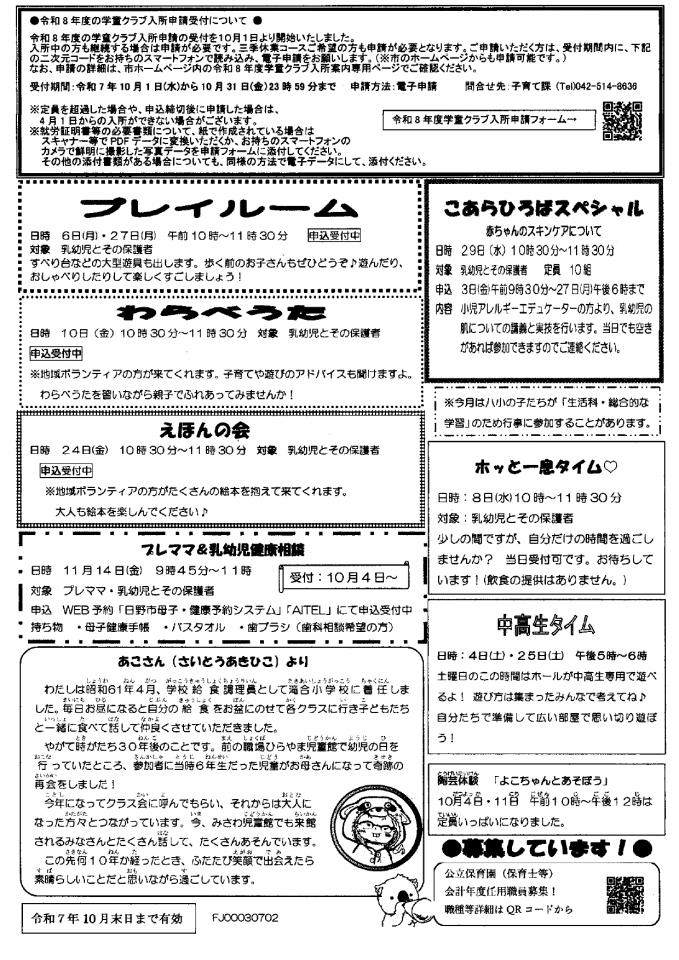 ●令和8年度の学童クラブ入所申請受付について ●
令和8年度の学童クラブ入所申請の受付を10月1日より開始いたしました。
入所中の方も継続する場合は申請が必要です。三季休業コースご希望の方も申請が必要となります。ご申請いただく方は、受付期間内に、下記
の二次元コードをお持ちのスマートフォンで読み込み、電子申請をお願いします。(※市のホームページからも申請可能です。)
なお、申請の詳細は、市ホームページ内の令和8年度学童クラブ入所案内専用ページでご確認ください。
受付期間:令和7年10月1日(水)から10月31日(金)23時59分まで 申請方法:電子申請 問合せ先:子育て課 (Tel)042-514-8636
※定員を超過した場合や、申込締切後に申請した場合は、
4月1日からの入所ができない場合がございます。
※就労証明書等の必要書類について、紙で作成されている場合は
スキャナー等でPDFデータに変換いただくか、お持ちのスマートフォンの
カメラで鮮明に撮影した写真データを申請フォームに添付してください。
その他の添付書類がある場合についても、同様の方法で電子データにして、添付ください。
令和8年度学童クラブ入所申請フォーム→
プレイルーム
日時 6日(月)・27日(月) 午前10時~11時30分 申込受付中
対象 乳幼児とその保護者
すべり台などの大型遊具も出します。歩く前のお子さんもぜひどうぞ♪遊んだり、
おしゃべりしたりして楽しくすごしましょう!
わらべうた
日時 10日(金)10時30分~11時30分 対象 乳幼児とその保護者
申込受付中
※地域ボランティアの方が来てくれます。子育てや遊びのアドバイスも聞けますよ。
わらべうたを習いながら親子でふれあってみませんか!
えほんの会
日時 24日(金) 10時30分~11時30分 対象 乳幼児とその保護者
申込受付中
※地域ボランティアの方がたくさんの絵本を抱えて来てくれます。
大人も絵本を楽しんでください♪
プレママ&乳幼児健康相談
日時 11月14日(金) 9時45分~11時
受付:10月4日~
対象 プレママ・乳幼児とその保護者
申込 WEB予約「日野市母子・健康予約システム」「AITEL」にて申込受付中
持ち物 ・母子健康手帳 ・バスタオル ・歯ブラシ(歯科相談希望の方)
あこさん(さいとうあきひこ)より
わたしは昭和61年4月、学校給食調理員として滝合小学校に着任しま
した。毎日お昼になると自分の給食をお盆にのせて各クラスに行き子どもたち
と一緒に食べて話して仲良くさせていただきました。
やがて時がたち30年後のことです。前の職場ひらやま児童館で幼児の日を
行っていたところ、参加者に当時6年生だった児童がお母さんになって奇跡の
再会をしました!
今年になってクラス会に呼んでもらい、それからは大人に
なった方々とつながっています。今、みさわ児童館でも来館
されるみなさんとたくさん話して、たくさんあそんでいます。
この先何10年か経ったとき、ふたたび笑顔で出会えたら
素晴らしいことだと思いながら過ごしています。
令和7年10月末日まで有効
FJ00030702
こあらひろばスペシャル
赤ちゃんのスキンケアについて
日時 29日(水)10時30分~11時30分
対象 乳幼児とその保護者 定員 10組
申込 3日(金)午前9時30分~27日(月)午後6時まで
内容 小児アレルギーエデュケーターの方より、乳幼児の
肌についての講義と実技を行います。当日でも空き
があれば参加できますのでご連絡ください。
※今月は八小の子たちが「生活科・総合的な
学習」のため行事に参加することがあります。
ホッと一息タイム♡
日時:8日(水)10時~11時30分
対象:乳幼児とその保護者
少しの間ですが、自分だけの時間を過ごし
ませんか? 当日受付可です。お待ちして
います!(飲食の提供はありません。)
中高生タイム
日時:4日(土)・25日(土) 午後5時~6時
土曜日のこの時間はホールが中高生専用で遊べ
るよ! 遊び方は集まったみんなで考えてね♪
自分たちで準備して広い部屋で思い切り遊ぼ
う!
陶芸体験 「よこちゃんとあそぼう」
10月4日・11日 午前10時~午後12時は
定員いっぱいになりました。
●募集しています!●
公立保育園(保育士等)
会計年度任用職員募集!
職種等詳細はQRコードから